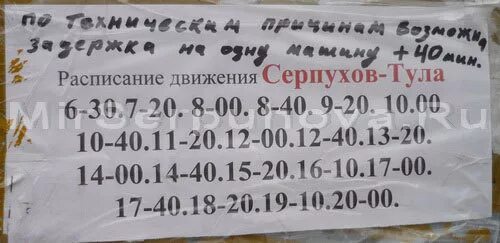 по техническим причинам возможна
задержка на одну машину + 40 мин.
Расписание движения Серпухов-Тула
6-30.7-20. 8-00. 8-40. 9-20. 10.00
10-40.11-20.12-00.12-40.13-20.
14-00.14-40.15-20.16-10.17-00.
17-40.18-20.19-10.20-00.
MirSerpuhova.Ru